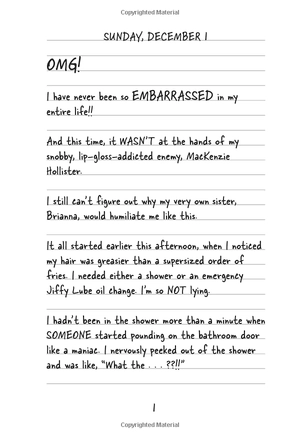 Copyrighted Material
SUNDAY, DECEMBER 1
OMG!
I have never been so EMBARRASSED in my
entire life!!
And this time, it WASN'T at the hands of my
snobby, lip-gloss-addicted enemy, MacKenzie
Hollister.
I still can't figure out why my very own sister,
Brianna, would humiliate me like this.
It all started earlier this afternoon, when I noticed
my hair was greasier than a supersized order of
fries. I needed either a shower or an emergency
Jiffy Lube oil change. I'm so NOT lying.
I hadn't been in the shower more than a minute when
SOMEONE started pounding on the bathroom door
like a maniac. I nervously peeked out of the shower
and was like, "What the . . . ??!!"
1
Copyrighted Material